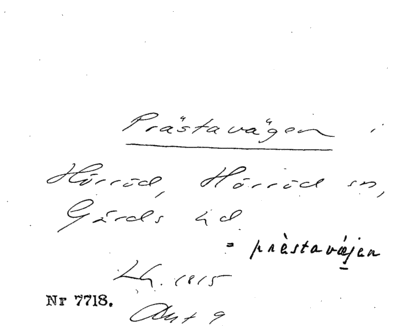 Prästavägen i
Hörröd, Hörröd sn,
Gärds hd
= prästavä̱jen
Lh. 1915
Nr 7718.
Ant 9